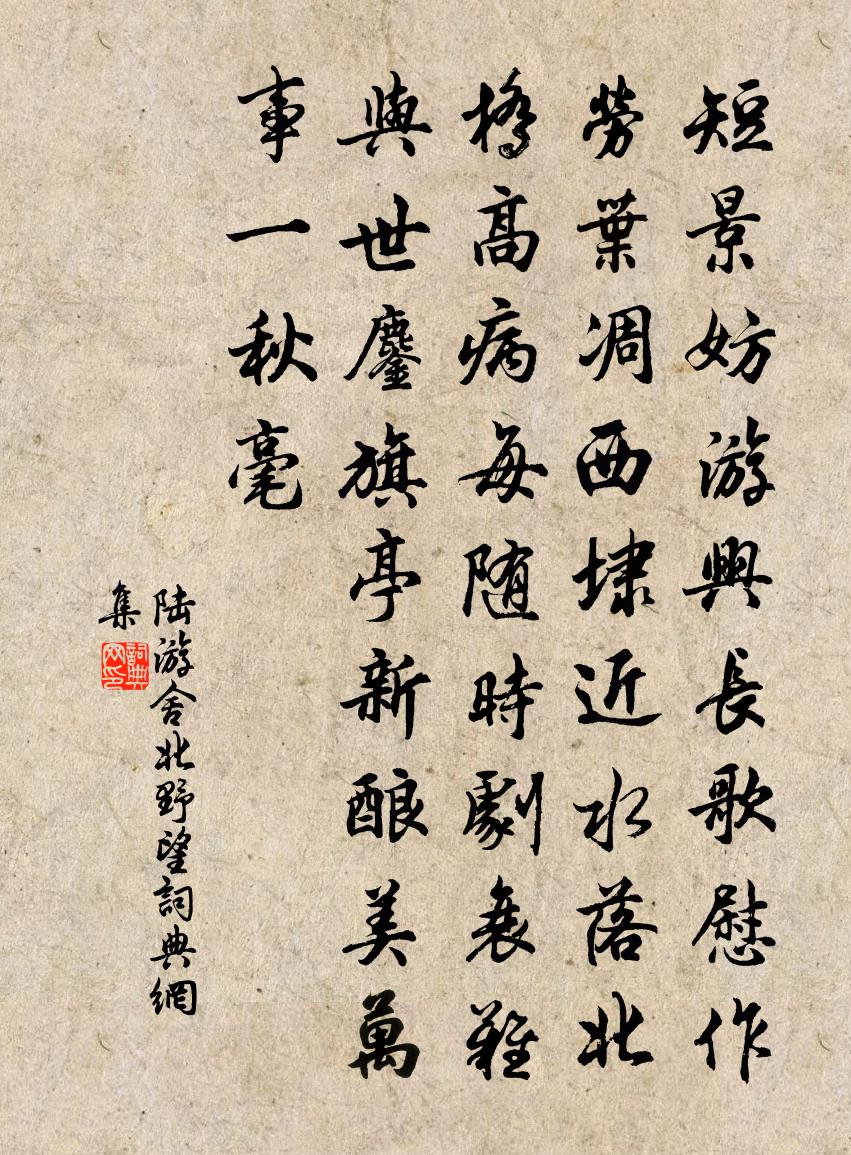 短景妨游興長歌慰作
勞葉凋西埭近水落北
橋高病每随時劇衰難
與世鏖旗亭新酿美萬
事一秋毫
陆游舍北野望詞典網
集
詞典
网印